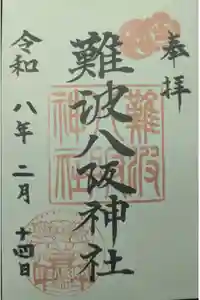 奉拝
難波八阪神社
令和八年二月十四日
難波八阪神社